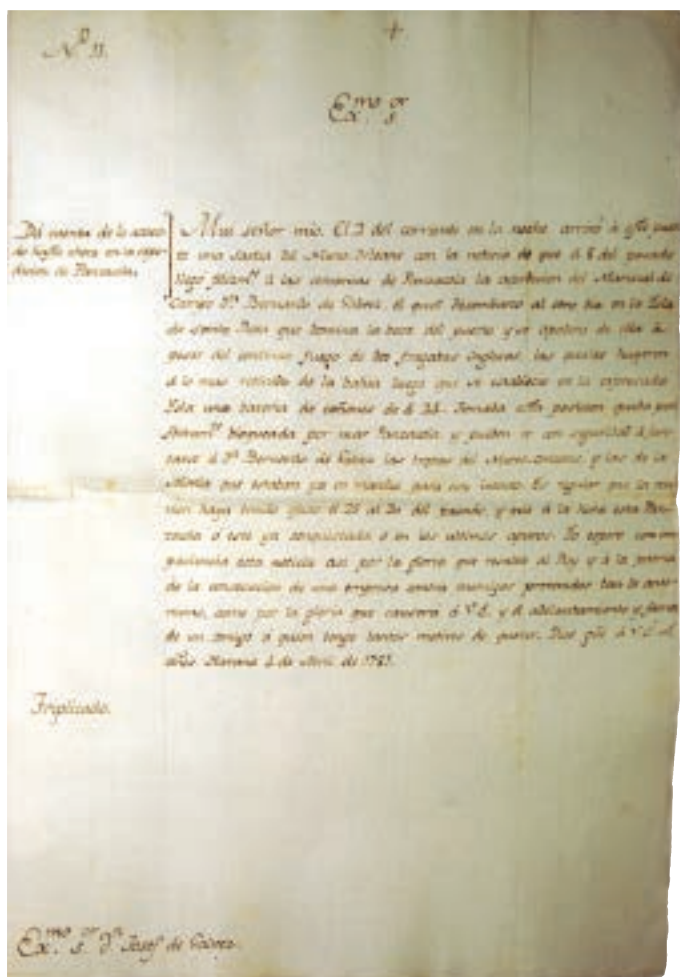 N.º 11.
+
Ex.mo s.or
Da cuenta de lo acaecido
hasta ahora en la expe-
dicion de Panzacola.
Muy señor mio. El 2 del corriente en la noche arrivó à este puer-
to una del Nuevo Orleans con la noticia de que el 8 del pasado
llegó felizm.te à las cercanias de Panzacola la expedicion del Mariscal de
Campo D.n Bernardo de Galvez, el qual desembarcó al otro dia en la Isla
de Santa Rosa que termina la boca del puerto y se apoderó de ella à
pesar del continuo fuego de dos fragatas Inglesas, las quales huyeron
à lo mas retirado de la bahia luego que se estableció en la expresada
Isla una bateria de cañones de à 24. Tomada esta posicion quedó per-
bloqueada por mar Panzacola y pueden ir con seguridad à
D.n Bernardo de Galvez las tropas del Nuevo Orleans y las de la
Mobila que estaban ya en marcha para este intento. Es regular que la reu-
nion haya tenido efecto el 20 al 24 del pasado, y que à la hora esta Pan-
zacola ò esté ya conquistada ò en los ultimos apuros. Yo espero con im-
paciencia esta noticia asi por la gloria que resulta al Rey y à la patria
de la de una empresa
como por la gloria que causará à V.E. y el adelantamiento y fama
de un amigo à quien tengo tantos motivos de querer. Dios gũe à V.E. m.s
años. Havana 4 de Abril de 1781.
Triplicado.
Ex.mo s.or D.n Josef de Galvez.